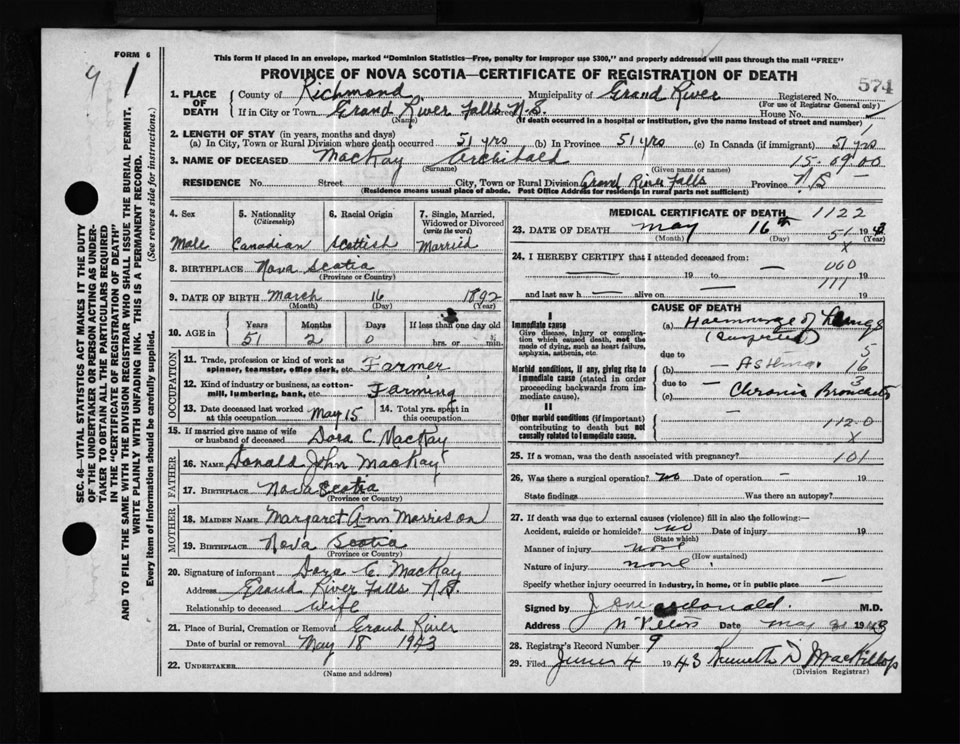 FORM 6
9 1
This form if placed in an envelope, marked "Dominion Statistics—Free, penalty for improper use $300," and properly addressed will pass through the mail "FREE"
PROVINCE OF NOVA SCOTIA—CERTIFICATE OF REGISTRATION OF DEATH
574
1. PLACE OF DEATH County of Richmond Municipality of Grand River Registered No.
(For use of Registrar General only)
If in City or Town Grand River Falls N.S. House No.
(If death occurred in a hospital or institution, give the name instead of street and number)
2. LENGTH OF STAY (in years, months and days)
(a) In City, Town or Rural Division where death occurred 51 yrs (b) In Province 51 yrs (c) In Canada (if immigrant) 51 yrs
3. NAME OF DECEASED MacKay Archibald 15-09-00
(Surname) (Given name or names)
RESIDENCE No. Street City, Town or Rural Division Grand River Falls Province N.S.
(Residence means usual place of abode. Post Office Address for residents in rural parts not sufficient)
4. Sex 5. Nationality (Citizenship) 6. Racial Origin 7. Single, Married, Widowed or Divorced (write the word)
Male Canadian Scottish Married
8. BIRTHPLACE Nova Scotia
(Province or Country)
9. DATE OF BIRTH March 16 1892
(Month) (Day) (Year)
10. AGE in Years Months Days If less than one day old
51 2 0 hrs. or min.
OCCUPATION
11. Trade, profession or kind of work as spinner, teamster, office clerk, etc. Farmer
12. Kind of industry or business, as cotton-mill, lumbering, bank, etc. Farming
13. Date deceased last worked at this occupation May 15 14. Total yrs. spent in this occupation
15. If married give name of wife or husband of deceased Dora C. MacKay
FATHER
16. NAME Donald John MacKay
17. BIRTHPLACE Nova Scotia
(Province or Country)
MOTHER
18. MAIDEN NAME Margaret Ann Morrison
19. BIRTHPLACE Nova Scotia
(Province or Country)
20. Signature of informant Dora C. MacKay
Address Grand River Falls N.S.
Relationship to deceased wife
21. Place of Burial, Cremation or Removal Grand River
Date of burial or removal May 18 1943
22. UNDERTAKER
(Name and address)
MEDICAL CERTIFICATE OF DEATH 1122
23. DATE OF DEATH May 16th 51 194
(Month) (Day) (Year)
X
24. I HEREBY CERTIFY that I attended deceased from:
— 19 to — 000 19
and last saw h — alive on — 111 19
CAUSE OF DEATH
I
Immediate cause
Give disease, injury or complication which caused death, not the mode of dying, such as heart failure, asphyxia, asthenia, etc.
(a) Haemorrage of Lungs
(Suspected)
due to 5
Morbid conditions, if any, giving rise to immediate cause (stated in order proceeding backwards from immediate cause).
(b) — Asthma 16
due to 3
(c) — Chronic Bronchitis
II
Other morbid conditions (if important) contributing to death but not causally related to immediate cause.
112-0
X
25. If a woman, was the death associated with pregnancy? 101
26. Was there a surgical operation? no Date of operation — 19
State findings Was there an autopsy?
27. If death was due to external causes (violence) fill in also the following:—
Accident, suicide or homicide? no Date of injury 19
(State which)
Manner of injury none
(How sustained)
Nature of injury none
Specify whether injury occurred in industry, in home, or in public place —
Signed by M.D.
Address St Peters Date May 1943
28. Registrar's Record Number 9
29. Filed June 4 1943 Kenneth D. MacKillop
(Division Registrar)
SEC. 46—VITAL STATISTICS ACT MAKES IT THE DUTY
OF THE UNDERTAKER OR PERSON ACTING AS UNDER-
TAKER TO OBTAIN ALL THE PARTICULARS REQUIRED
IN THE "CERTIFICATE OF REGISTRATION OF DEATH"
AND TO FILE THE SAME WITH THE DIVISION REGISTRAR WHO SHALL ISSUE THE BURIAL PERMIT.
WRITE PLAINLY WITH UNFADING INK. THIS IS A PERMANENT RECORD.
Every item of information should be carefully supplied. (See reverse side for instructions.)